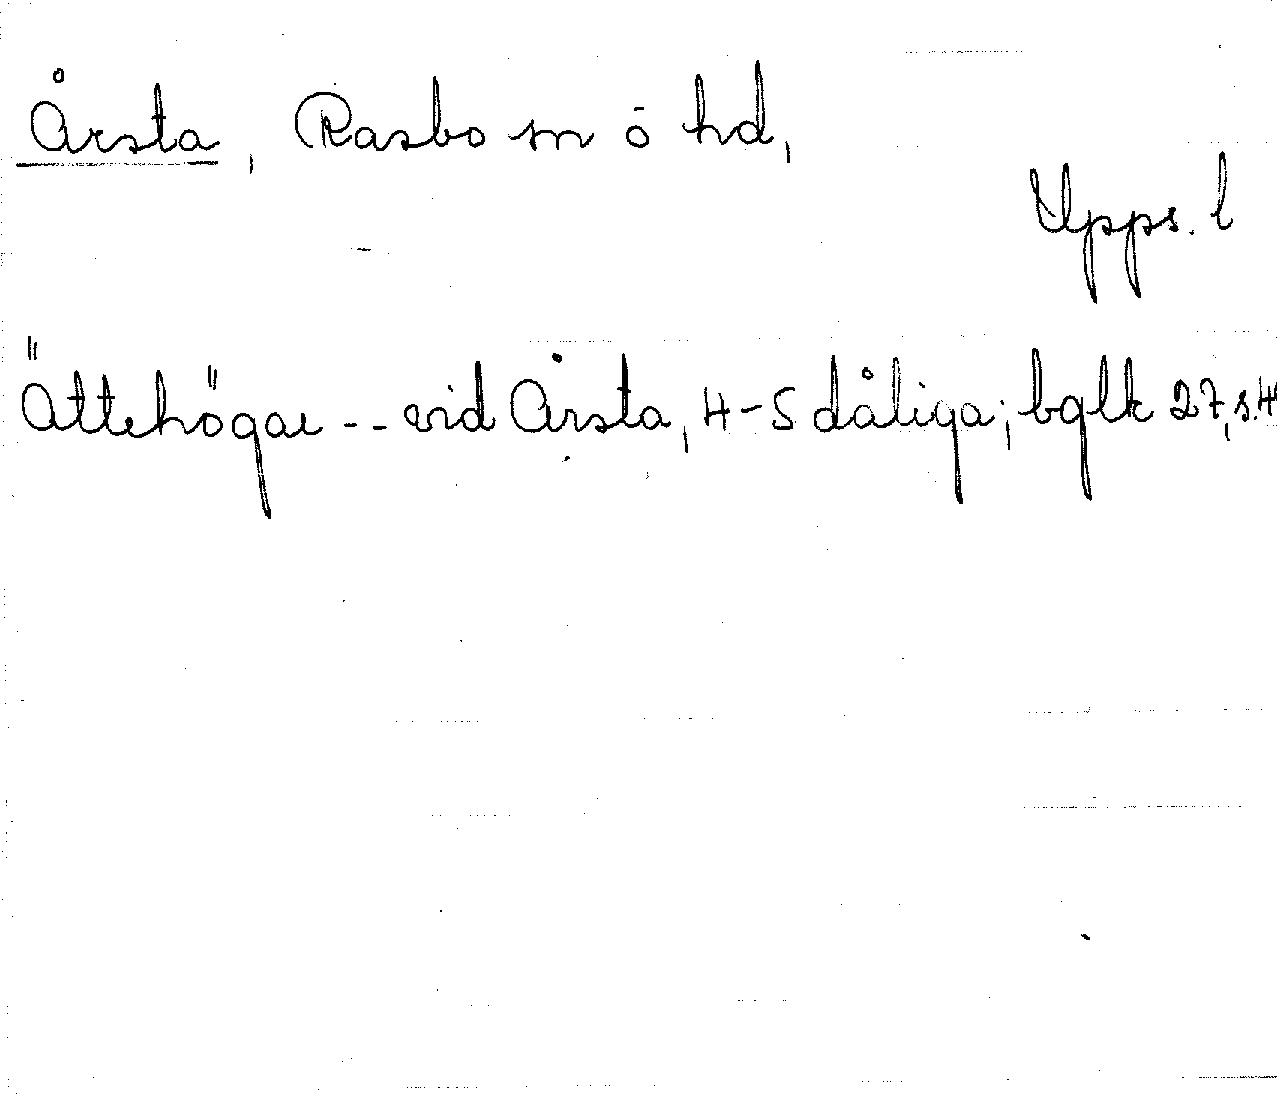 Årsta, Rasbo sn o hd,
Upps. l
Ättehögar -- vid Årsta, 4-5 dåliga; bglk 27, s. 4